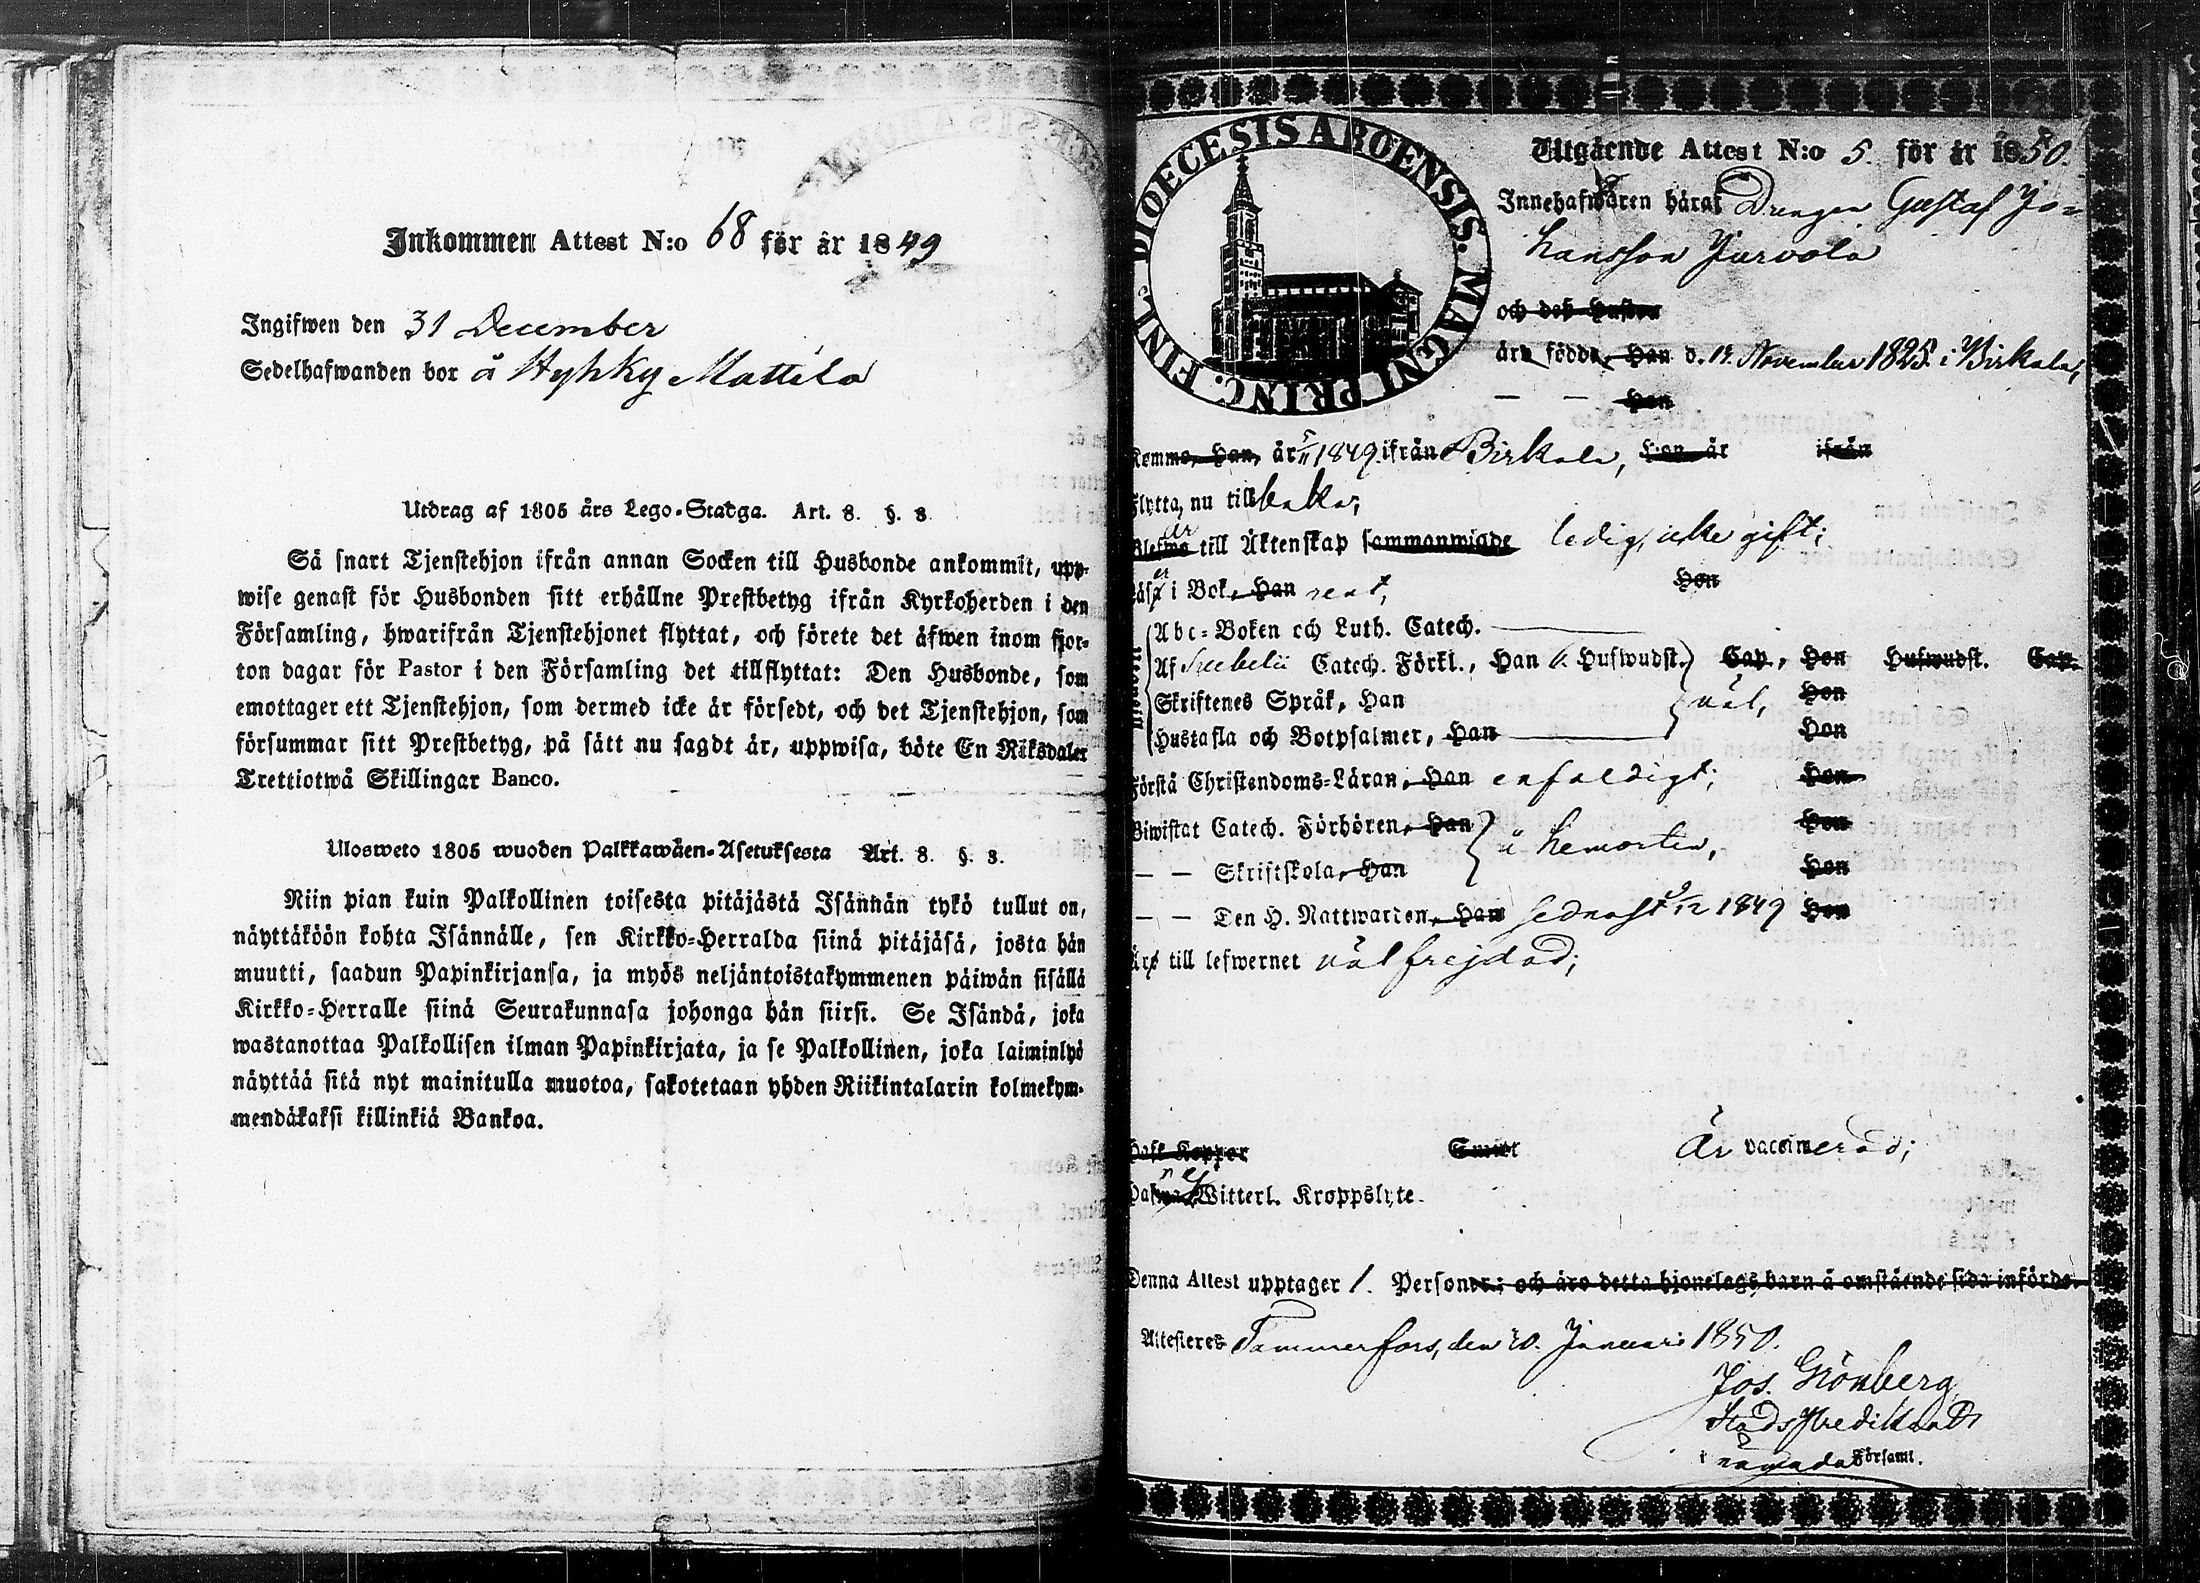 Inkommen Attest N:o 68 för år 1849
Ingifwen den 31 December
Sedelhafwanden bor å Hyhky Mattila
Utdrag af 1805 års Lego-Stadga. Art. 8. §. 3.
Så snart Tjenstehjon ifrån annan Socken till Husbonde ankommit, upp-
wise genast för Husbonden sitt erhållne Prestbetyg ifrån Kyrkoherden i den
Församling, hwarifrån Tjenstehjonet flyttat, och förete det äfwen inom fjor-
ton dagar för Pastor i den Församling det tillflyttat: Den Husbonde, som
emottager ett Tjenstehjon, som dermed icke är försedt, och det Tjenstehjon, som
försummar sitt Prestbetyg, på sätt nu sagdt är, uppwisa, böte En Riksdaler
Trettiotwå Skillingar Banco.
Ulosweto 1805 wuoden Palkkawäen-Asetuksesta Art. 8. §. 3.
Niin pian kuin Palkollinen toisesta pitäjästä Isännän tykö tullut on,
näyttäköön kohta Isännälle, sen Kirkko-Herralda siinä pitäjäsä, josta hän
muutti, saadun Papinkirjansa, ja myös neljäntoistakymmenen päiwän sisällä
Kirkko-Herralle siinä Seurakunnasa johonga hän siirsi. Se Isändä, joka
wastanottaa Palkollisen ilman Papinkirjata, ja se Palkollinen, joka laiminlyö
näyttää sitä nyt mainitulla muotoa, sakotetaan yhden Riikintalarin kolmekym-
mendäkaksi killinkiä Bankoa.
DIOECESIS ABOENSIS. MAGNI PRINC. FINL.
Utgående Attest N:o 5. för år 1850.
Innehafwaren häraf Drengen Gustaf Jo-
hansson Jurvola
och deß Hustru
äro födde, Han d. 19. November 1825. i Birkala,
— — Hon
Komme, Han, år 5/11 1849. ifrån Birkala, Hon år ifrån
Flytta, nu tillbaka;
Blefwo är till Äktenskap sammanwigde ledig, icke gift;
Läsa er i Bok, Han rent, Hon
Abc-Boken och Luth. Catech.
Af Svebelii Catech. Förkl., Han 6. Hufwudst. Cap., Hon Hufwudst. Cap.
Skriftenes Språk, Han väl, Hon
Hustafla och Botpsalmer, Han Hon
Förstå Christendoms-Läran, Han enfaldigt; Hon
Biwistat Catech. Förhören, Han i hemorten, Hon
— — Skriftskola, Han Hon
— — Den H. Nattwarden, Han sednast 9/12 1849 Hon
Äro till lefwernet välfrejdad;
Haft Koppor Smitt Är vaccinerad;
Hafwa ej Witterl. Kroppslyte.
Denna Attest upptager 1. Personer; och äro detta hjonelags barn å omstående sida införde.
Attesteres Tammerfors, den 10. Januari 1850.
Jos. Grönberg
Stads Predikant
i nämnda Församl.